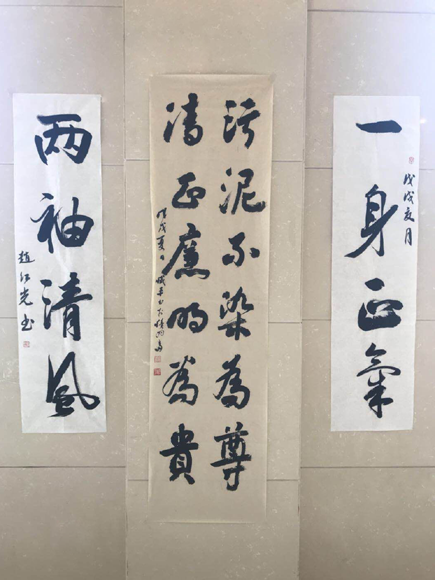 一身正氣
戊戌夏月
污泥不染為尊
清正廉明為貴
戊戌夏月
两袖清風
趙江光书